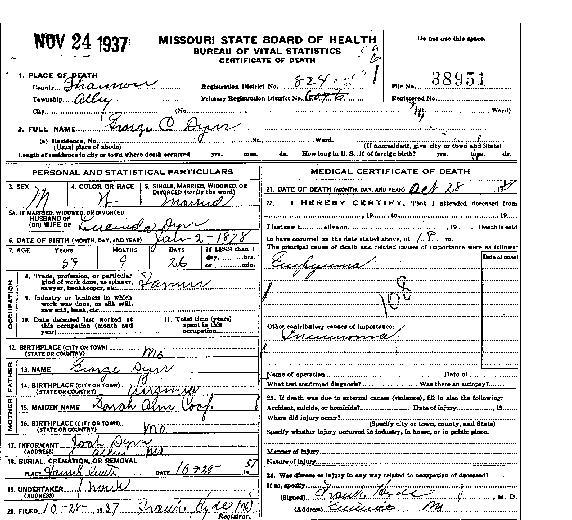 NOV 24 1937
MISSOURI STATE BOARD OF HEALTH
BUREAU OF VITAL STATISTICS
CERTIFICATE OF DEATH
Do not use this space.
1. PLACE OF DEATH
County Shannon
Registration District No. 824
File No. 38951
Township
Primary Registration District No.
Registered No.
City (No. Ward)
2. FULL NAME George C Dyer
(a) Residence, No. St. Ward.
(Usual place of abode) (If nonresident, give city or town and State)
Length of residence in city or town where death occurred yrs. mos. ds. How long in U. S. if of foreign birth? yrs. mos. ds.
PERSONAL AND STATISTICAL PARTICULARS
3. SEX M
4. COLOR OR RACE W
5. SINGLE, MARRIED, WIDOWED, OR DIVORCED (write the word) Married
5A. IF MARRIED, WIDOWED, OR DIVORCED
HUSBAND OF
(OR) WIFE OF Lucinda Dyer
6. DATE OF BIRTH (MONTH, DAY, AND YEAR) Jan-2-1878
7. AGE YEARS MONTHS DAYS If LESS than 1 day, hrs. or min.
59 9 26
OCCUPATION
8. Trade, profession, or particular kind of work done, as spinner, sawyer, bookkeeper, etc. Farmer
9. Industry or business in which work was done, as silk mill, saw mill, bank, etc.
10. Date deceased last worked at this occupation (month and year)
11. Total time (years) spent in this occupation
12. BIRTHPLACE (CITY OR TOWN)
(STATE OR COUNTRY) Mo
FATHER
13. NAME George Dyer
14. BIRTHPLACE (CITY OR TOWN)
(STATE OR COUNTRY) Virginia
MOTHER
15. MAIDEN NAME Sarah Ann
16. BIRTHPLACE (CITY OR TOWN)
(STATE OR COUNTRY) Mo
17. INFORMANT Dyer
(ADDRESS) Mo
18. BURIAL, CREMATION, OR REMOVAL
PLACE DATE 10-28 1937
19. UNDERTAKER
(ADDRESS)
20. FILED 10-28-1937 Frank Hyde MD
Registrar.
MEDICAL CERTIFICATE OF DEATH
21. DATE OF DEATH (MONTH, DAY, AND YEAR) Oct 28 1937
22. I HEREBY CERTIFY, That I attended deceased from
, 19 , to , 19
I last saw h alive on , 19 . Death is said
to have occurred on the date stated above, at 1 P. m.
The principal cause of death and related causes of importance were as follows:
Date of onset
Empyema
108
Other contributory causes of importance:
Pneumonia
Name of operation Date of
What test confirmed diagnosis? Was there an autopsy?
23. If death was due to external causes (violence), fill in also the following:
Accident, suicide, or homicide? Date of injury , 19
Where did injury occur?
(Specify city or town, county, and State)
Specify whether injury occurred in industry, in home, or in public place.
Manner of injury
Nature of injury
24. Was disease or injury in any way related to occupation of deceased?
If so, specify
(Signed) Frank Hyde , M. D.
(Address) Eminence Mo